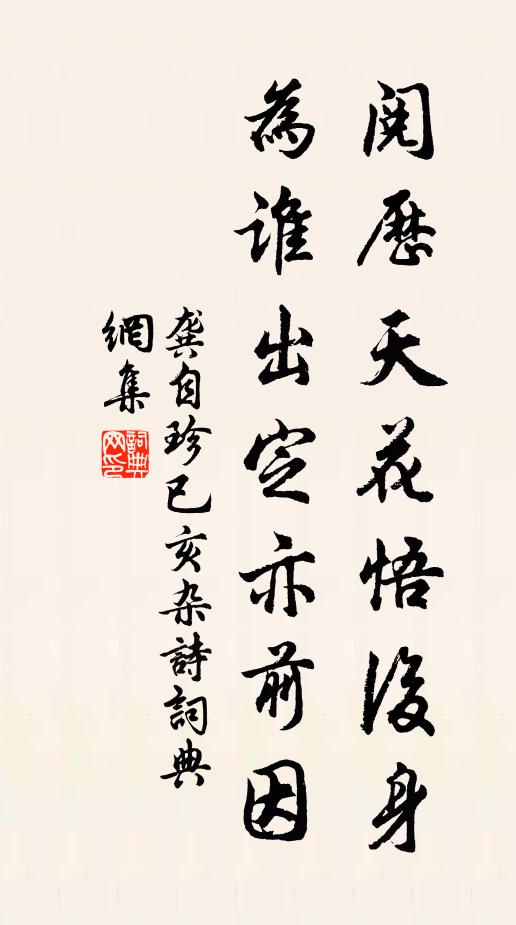 閱歷天花悟後身
為誰出定亦前因
龔自珍己亥杂詩詞典
網集
詞典網印